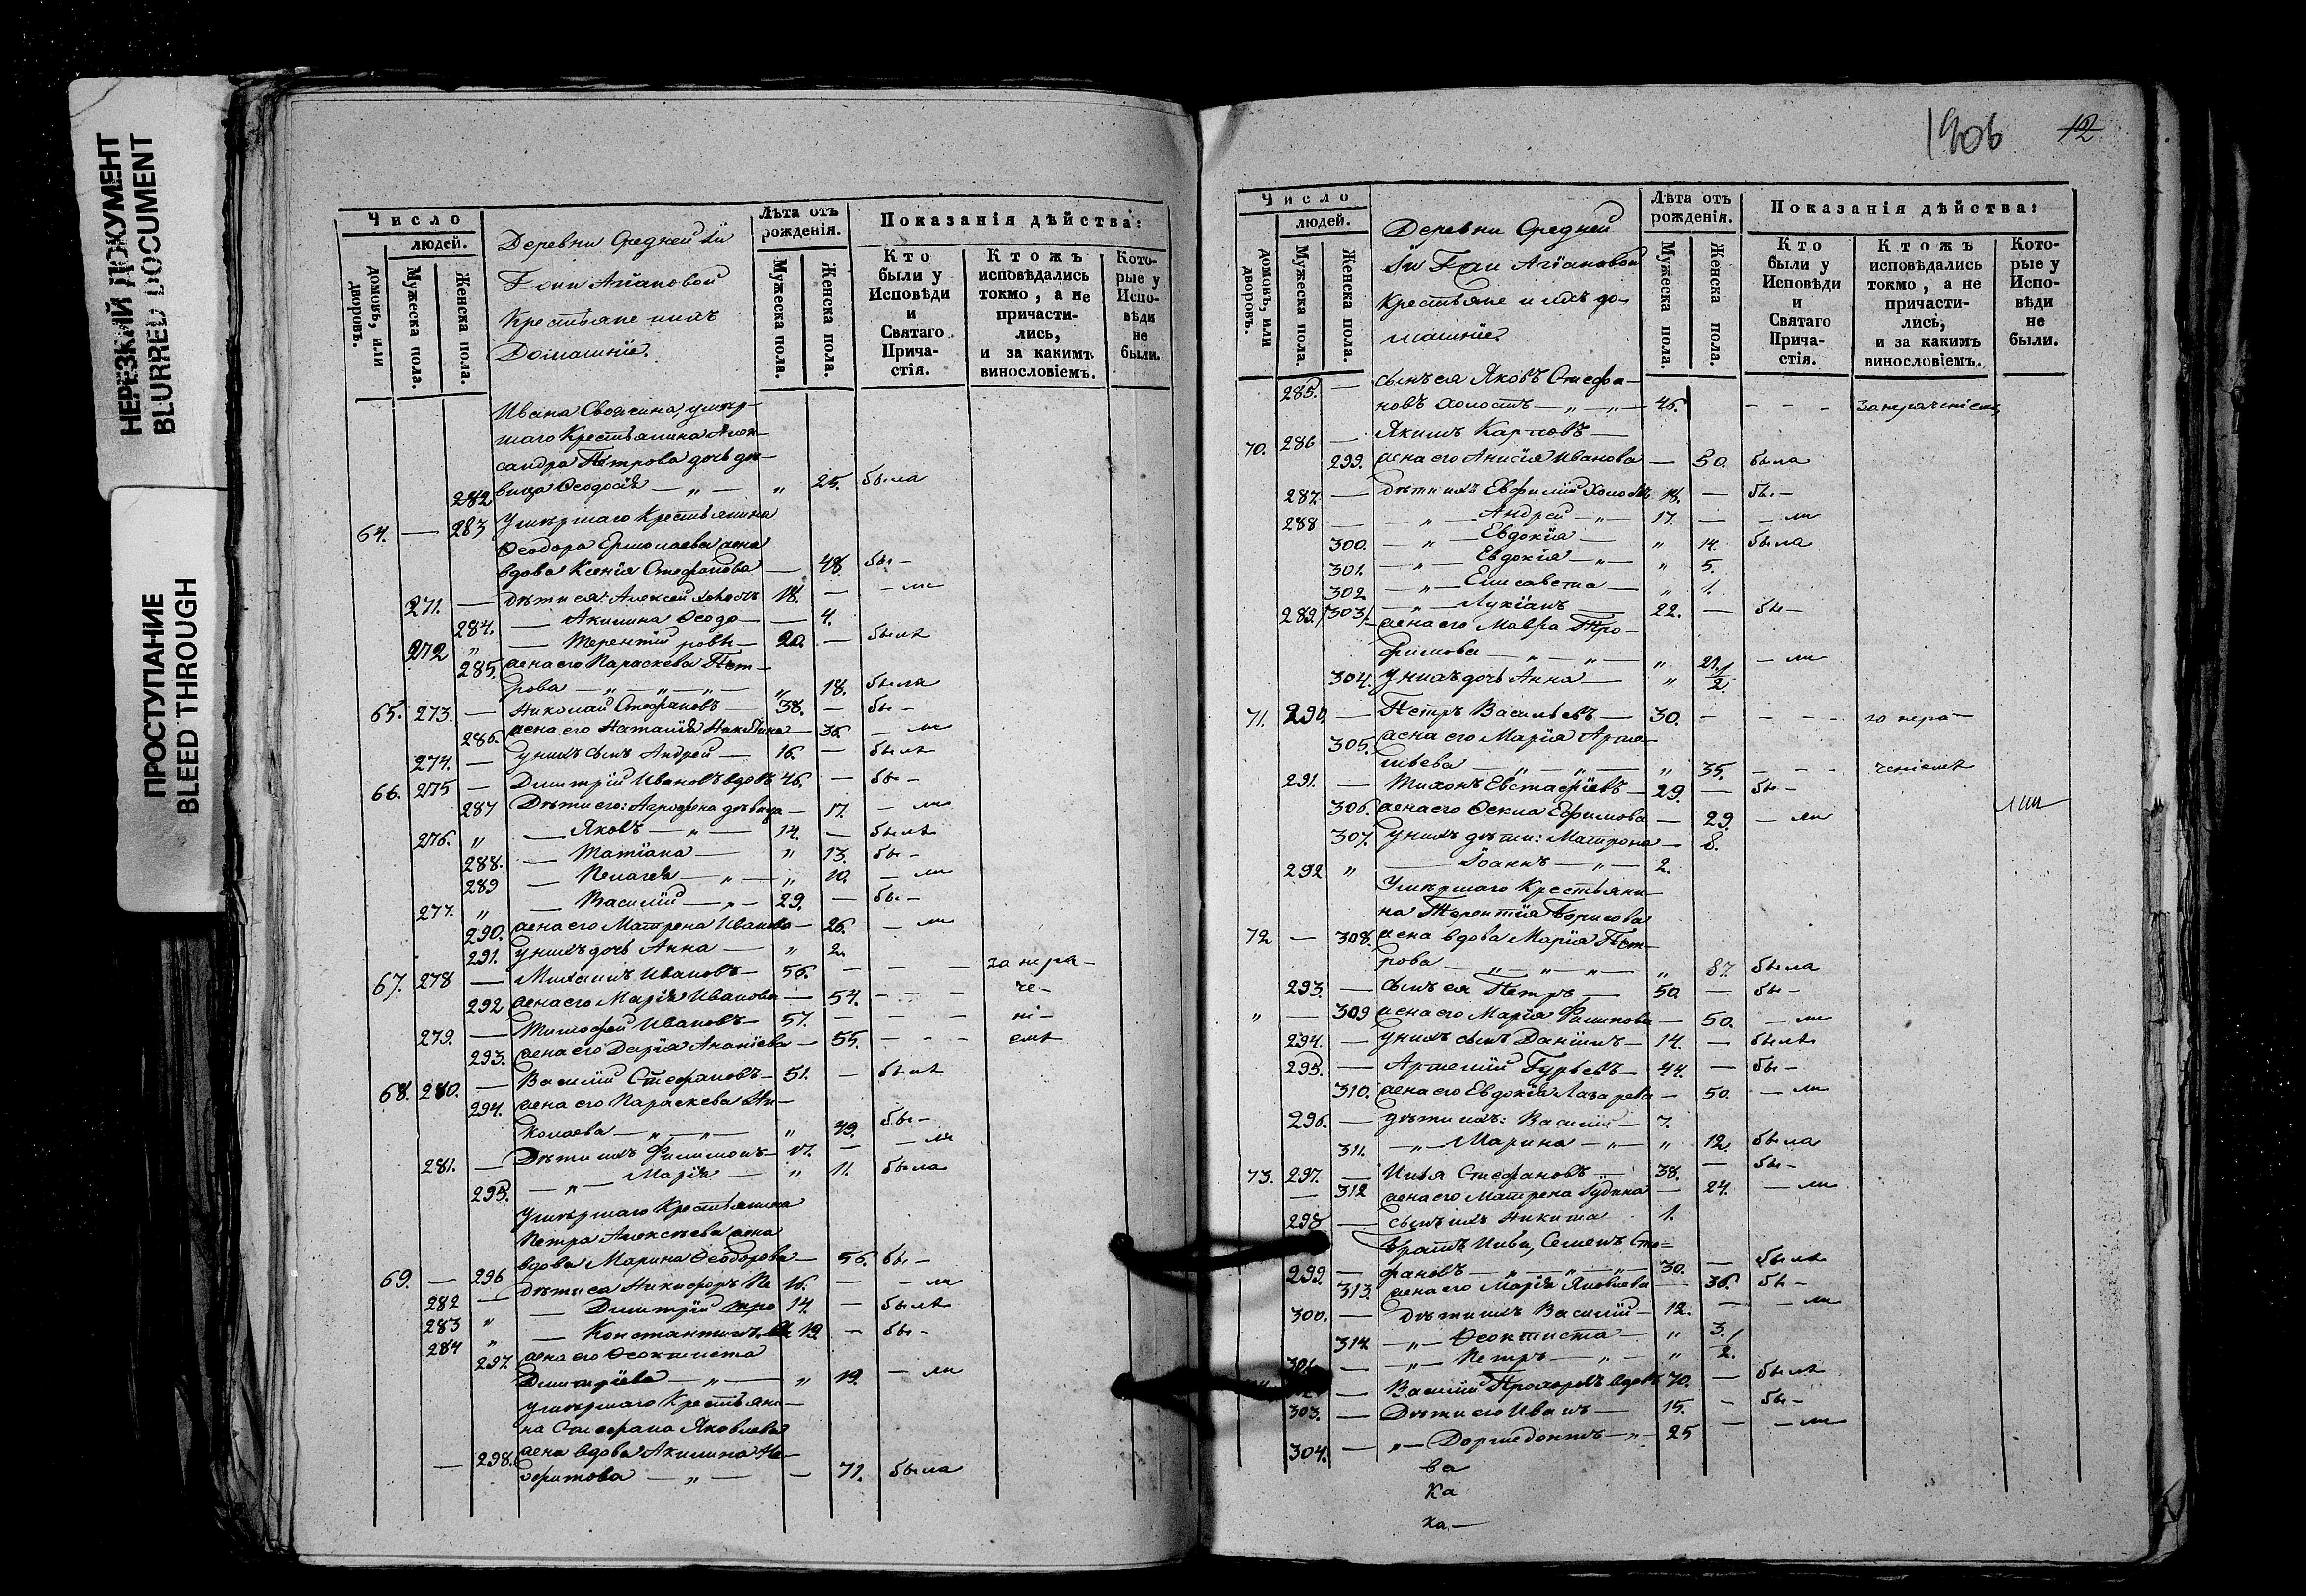 НЕРЕЗКИЙ ДОКУМЕНТ
BLURRED DOCUMENT
ПРОСТУПАНИЕ
BLEED THROUGH
Число
людей.
домовъ, или дворовъ.
Мужеска пола.
Женска пола.
Деревни Средней
Крестьяне и ихъ
Домашнiе.
Лѣта отъ рожденiя.
Мужеска пола.
Женска пола.
Показанiя дѣйства:
Кто были у Исповѣди и Святаго Прича-стiя.
Ктожъ исповѣдались токмо, а не причасти-лись, и за какимъ винословiемъ.
Кото-рые у Испо-вѣди не были.
Ивана умер-
шаго Крестьянина Алек-
сандра Петрова дочь дѣ-
282 вица Ѳеодосiя — „ — „ 25. была
64. — 283 Умершаго Крестьянина
Ѳеодора Ермолаева жена
вдова Ксенiя Стефанова — 48 бы-
271. — дѣти ея: Алексей холостъ 18. — - ли
284. — Акилина Ѳеодо- — 4.
272 „ — Терентiй ровы- 20. — былъ
285. жена его Параскева Пет-
рова — „ — „ — „ — „ 18. была
65. 273. — Николай Стефановъ — 38. — бы-
286. жена его Наталiя Никитина — 36 - ли
274. — у нихъ сынъ Андрей — 16. — былъ
66. 275 — Димитрiй Ивановъ вдовъ 46. — бы-
287 Дѣти его: Агрофена дѣвица — 17. - ли
276. „ — Яковъ — „ — 14. — былъ
288. — Татiана — „ 13. бы-
289 — Пелагея — „ — „ 10. - ли
277. „ — Василiй — „ — 29. — бы-
290. жена его Матрена Иванова — 26. - ли
291. у нихъ дочь Анна — „ 2.
67. 278 — Михаилъ Ивановъ — 56. — — — за нера-
292 жена его Марiя Иванова — 54. — — — че-
279. — Тимофей Ивановъ — 57. — — — нi-
293. жена его Дарiя Ананiева — 55. — — — емъ
68. 280. — Василiй Стефановъ — 51. — былъ
294. жена его Параскева Ни-
колаева — „ — „ — „ 49. бы-
281. — Дѣти ихъ Филимонъ — 17. — - ли
295. — „ — Марiя — „ 11. была
Умершаго Крестьянина
Петра Алексѣева жена
69. — 296 вдова Марина Ѳеодорова — 56. бы-
282 — дѣти ея Никифоръ Пе 16. — - ли
283 „ — Димитрiй тро 14. — былъ
284 „ — Константинъ 19. — бы-
297. жена его Ѳеоктиста
Димитрiева — „ — „ 19. - ли
умершаго Крестьяни-
на Стефана Яковлева
— 298. жена вдова Акилина
— „ — — 71. была
1906 12
Число
людей.
домовъ, или дворовъ.
Мужеска пола.
Женска пола.
Деревни Средней
Крестьяне и ихъ до-
машнiе.
Лѣта отъ рожденiя.
Мужеска пола.
Женска пола.
Показанiя дѣйства:
Кто были у Исповѣди и Святаго Прича-стiя.
Ктожъ исповѣдались токмо, а не причасти-лись, и за какимъ винословiемъ.
Кото-рые у Испо-вѣди не были.
285. — сынъ ея Яковъ Стефа-
новъ холостъ — „ — „ — 46. — — — за нераченiемъ
70. 286 — Якимъ Карповъ —
299. жена его Анисiя Иванова — 50. была
287. — дѣти ихъ Евфимiй холостъ 18. — бы-
288 — — „ — Андрей — „ — 17. — - ли
300. — „ — Евдокiя — „ 14. была
301. — „ — Евдокiя — „ — „ 5.
302 — „ — Елисавета — „ 1.
289. — „ — Лукiанъ — 22. — бы-
303. жена его Мавра Тро-
фимова — „ — „ — „ 21. - ли
304. у нихъ дочь Анна — „ 1/2.
71. 290. — Петръ Васильевъ — 30. — — — за нера-
305. жена его Марiя Арте-
мьева — „ — „ — „ 35. — — ченiемъ
291. — Тихонъ Евстафiевъ — 29. — бы-
306. жена его Ѳекла Ефимова — 29. - ли
307. у нихъ дѣти: Матрона — 8.
292 „ — Iоаннъ — „ — 2.
Умершаго Крестьяни-
на Терентiя Борисова
72 — 308. жена вдова Марiя Пет-
рова — „ — „ — „ — „ 87. была
293. — сынъ ея Петръ — 50. — бы-
„ — 309 жена его Марiя Филипова — 50. - ли
294. — у нихъ сынъ Данiилъ — 14. — былъ
295. — Артемiй Гурьевъ — 44. — бы-
310. жена его Евдокiя Лазарева — 50. - ли
296. — дѣти ихъ: Василiй — 7.
311. — „ — Марина — „ — „ 12. была
73. 297. — Илья Стефановъ — 38. — бы-
— 312 жена его Матрена — 24. - ли
298 — сынъ ихъ Никита 1.
братъ Ильи, Семенъ Сте-
299. — фановъ — „ — „ — „ — 30. — былъ
313. жена его Марiя Яковлева — 36. бы-
300. — Дѣти ихъ Василiй — 12. — - ли
314 — „ — Ѳеоктиста — „ 3.
301. — „ — Петръ — „ — „ 1/2.
— Василiй Прохоровъ вдовъ 70. — былъ
303. — Дѣти его Иванъ — 15. — бы-
304. — „ — Дормедонтъ — „ — 25 — - ли
ва
ка
ха-